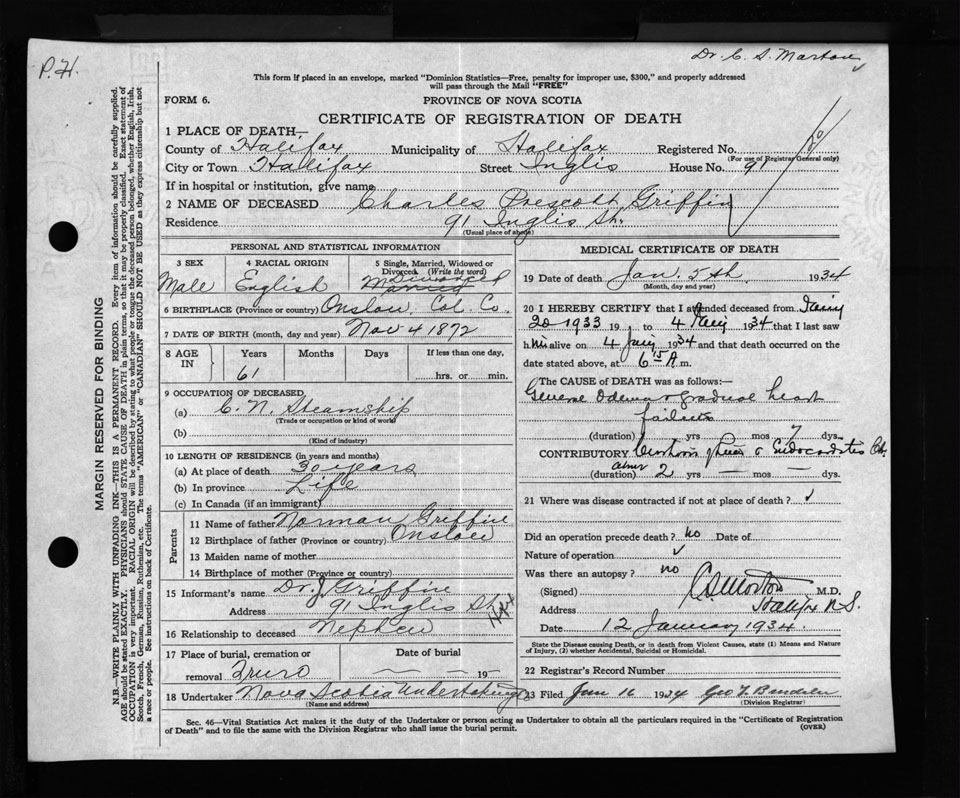 P.H.
Dr. C. S. Morton
This form if placed in an envelope, marked "Dominion Statistics—Free, penalty for improper use, $300," and properly addressed
will pass through the Mail "FREE"
FORM 6.
PROVINCE OF NOVA SCOTIA
CERTIFICATE OF REGISTRATION OF DEATH
1 PLACE OF DEATH—
County of Halifax Municipality of Halifax Registered No.
(For use of Registrar General only)
City or Town Halifax Street Inglis House No. 91
If in hospital or institution, give name
2 NAME OF DECEASED Charles Prescott Griffin
Residence 91 Inglis St.
(Usual place of abode)
PERSONAL AND STATISTICAL INFORMATION
3 SEX
Male
4 RACIAL ORIGIN
English
5 Single, Married, Widowed or
Divorced (Write the word)
Divorced
Married
6 BIRTHPLACE (Province or country) Onslow Col. Co.
7 DATE OF BIRTH (month, day and year) Nov 4 1872
8 AGE IN Years Months Days If less than one day,
61 hrs. or min.
9 OCCUPATION OF DECEASED
(a) C. N. Steamship
(Trade or occupation or kind of work)
(b)
(Kind of industry)
10 LENGTH OF RESIDENCE (in years and months)
(a) At place of death 30 years
(b) In province Life
(c) In Canada (if an immigrant)
Parents
11 Name of father Norman Griffin
12 Birthplace of father (Province or country) Onslow
13 Maiden name of mother
14 Birthplace of mother (Province or country)
15 Informant's name Dr J Griffin
Address 91 Inglis St.
16 Relationship to deceased Nephew
17 Place of burial, cremation or Date of burial
removal Truro — — 19 —
18 Undertaker Nova Scotia Undertaking
(Name and address)
MEDICAL CERTIFICATE OF DEATH
19 Date of death Jan. 5th 1934
(Month, day and year)
20 I HEREBY CERTIFY that I attended deceased from
20 1933 19 to 4 1934 that I last saw
h his alive on 4 Jany 1934 and that death occurred on the
date stated above, at 6 15 A. m.
The CAUSE OF DEATH was as follows:
General Odema & gradual heart
failure
(duration) yrs — mos 7 dys.
CONTRIBUTORY
(duration) about 2 yrs — mos — dys.
21 Where was disease contracted if not at place of death? ✓
Did an operation precede death? no Date of
Nature of operation ✓
Was there an autopsy? no
(Signed) C S Morton M.D.
Address Halifax N.S.
Date 12 January 1934.
State the Disease causing Death, or in death from Violent Causes, state (1) Means and Nature
of Injury, (2) whether Accidental, Suicidal or Homicidal.
22 Registrar's Record Number
23 Filed Jan 16 1934 Geo
(Division Registrar)
Sec. 46—Vital Statistics Act makes it the duty of the Undertaker or person acting as Undertaker to obtain all the particulars required in the "Certificate of Registration
of Death" and to file the same with the Division Registrar who shall issue the burial permit. (OVER)
MARGIN RESERVED FOR BINDING
N.B.—WRITE PLAINLY WITH UNFADING INK—THIS IS A PERMANENT RECORD. Every item of information should be carefully supplied.
AGE should be stated EXACTLY. PHYSICIANS should STATE CAUSE OF DEATH in plain terms, so that it may be properly classified. Exact statement of
OCCUPATION is very important. RACIAL ORIGIN will be described by stating to what people or tongue the deceased person belonged, whether English, Irish,
Scotch, French, German, Russian, Ruthenian, etc. The terms "AMERICAN" or "CANADIAN" SHOULD NOT BE USED as they express citizenship but not
a race or people. See instructions on back of Certificate.